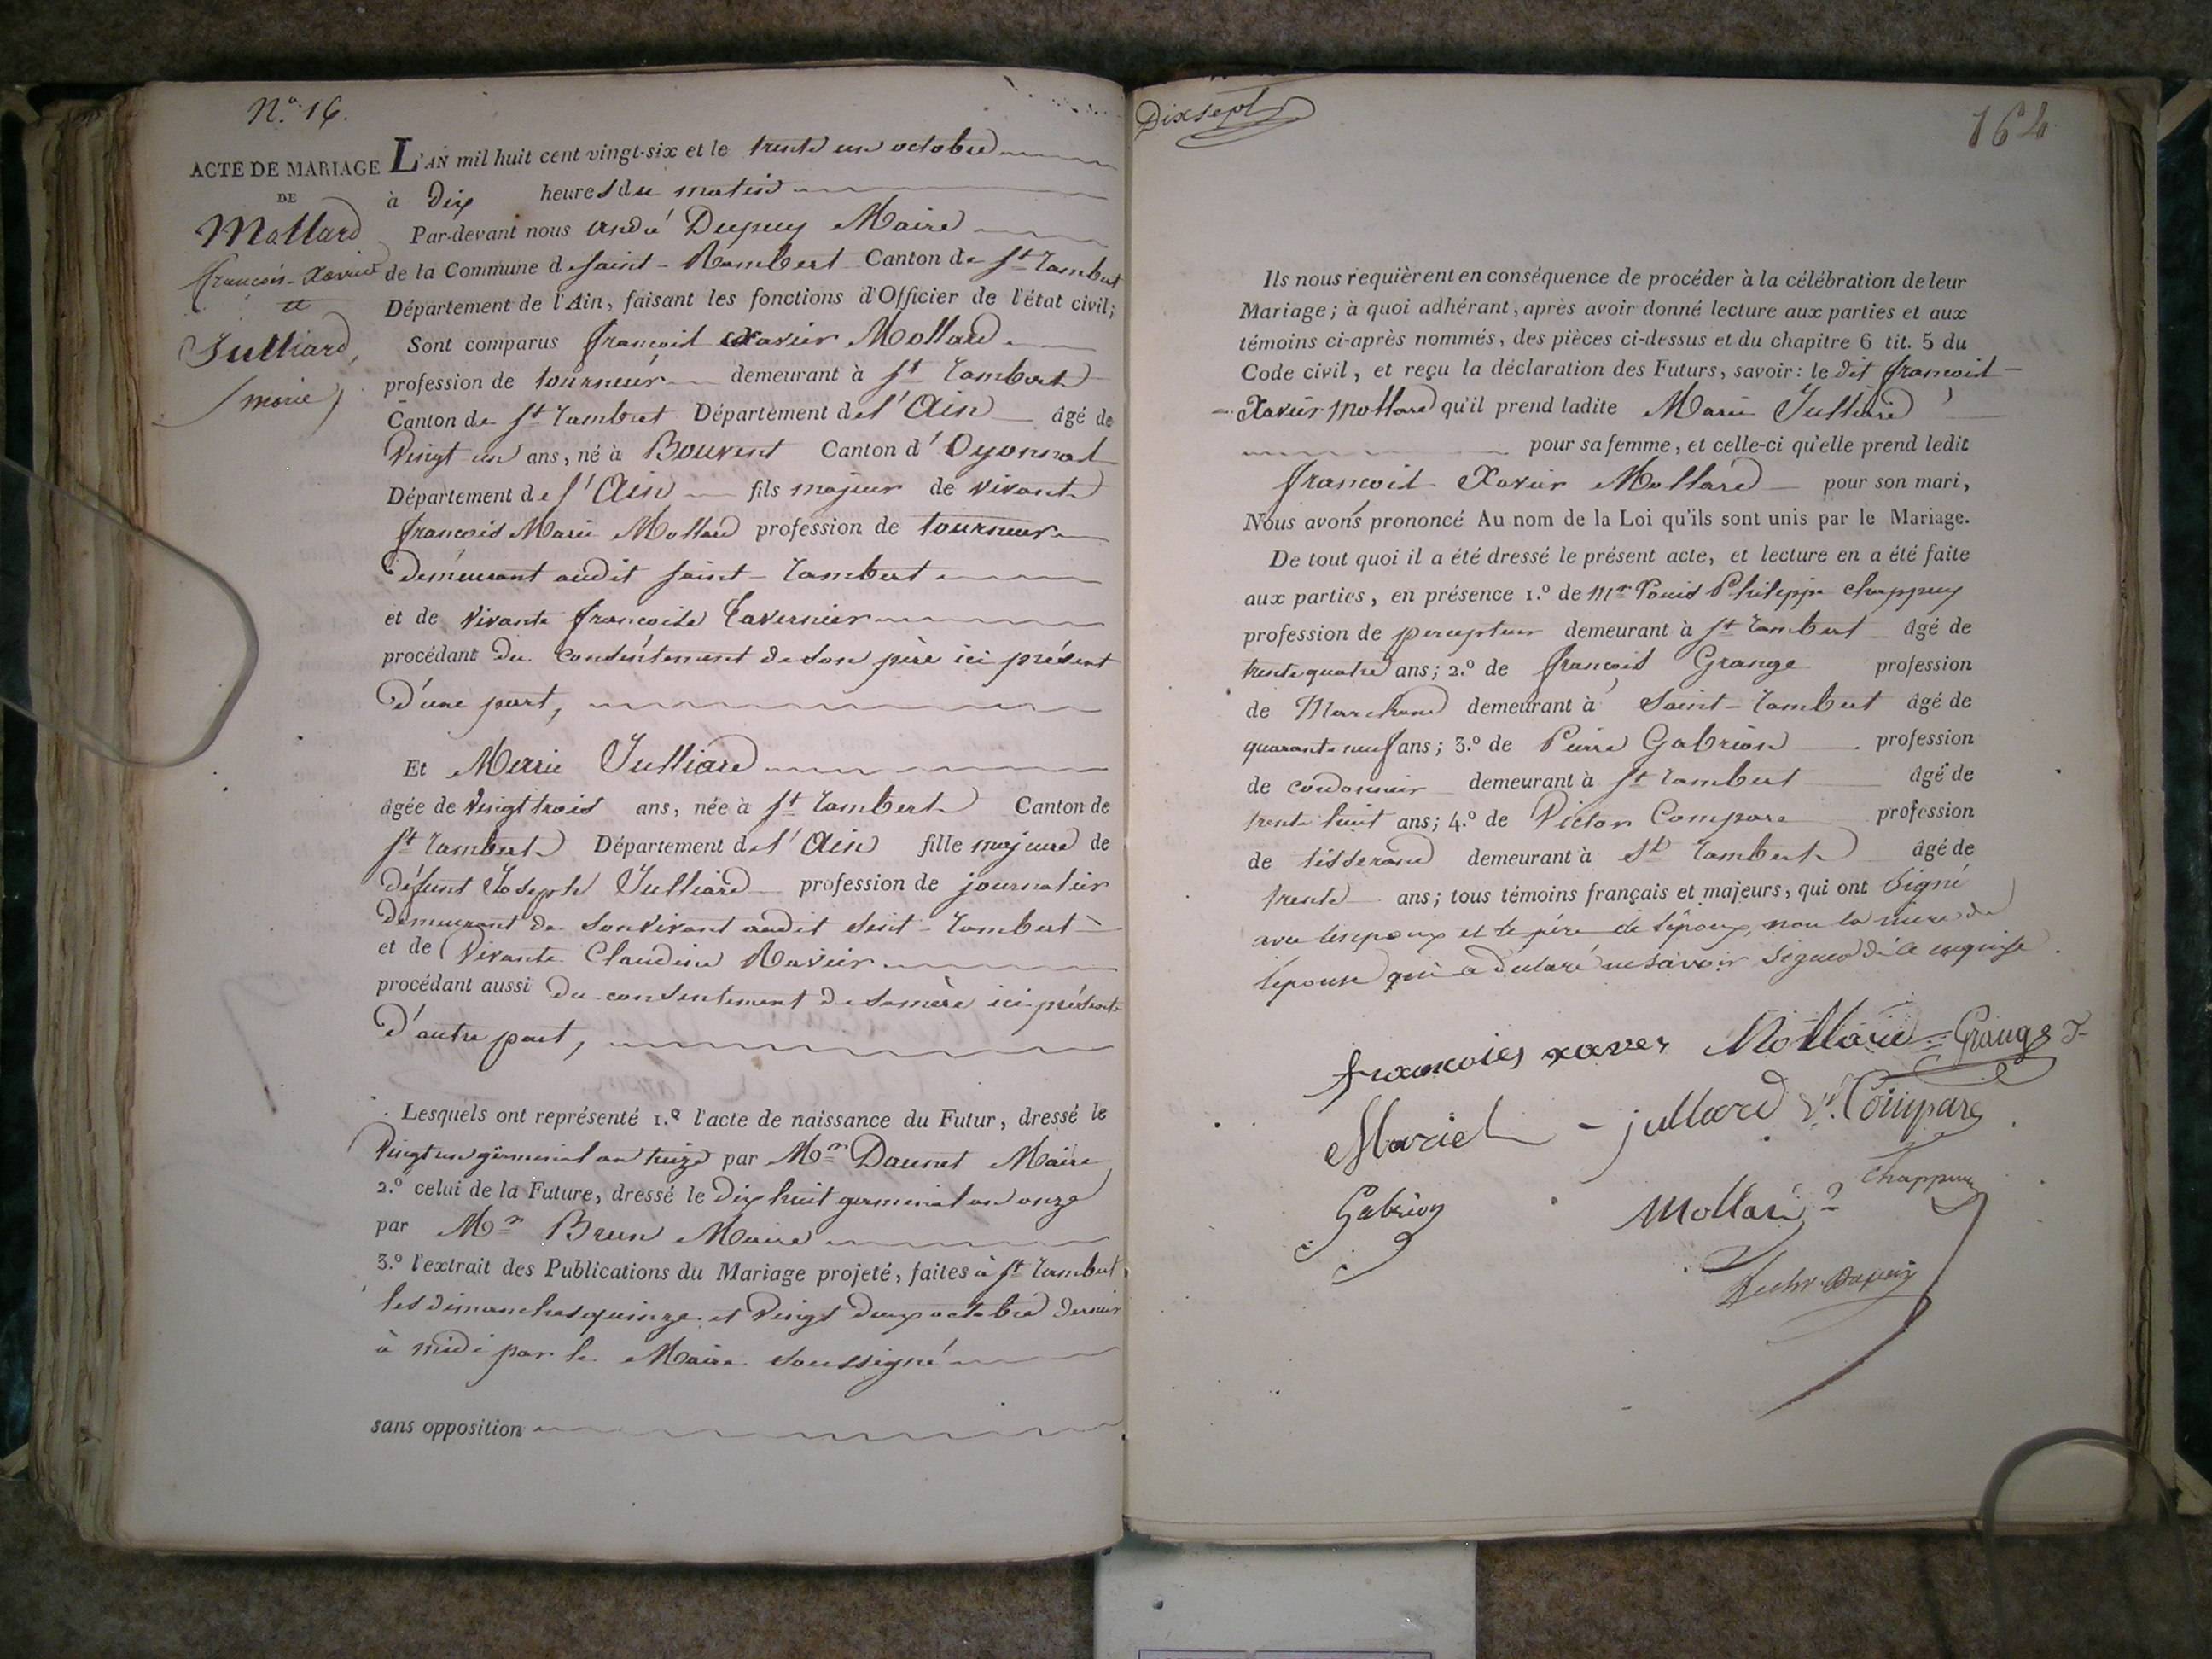 N.º 16.
ACTE DE MARIAGE
DE
Mollard
françois-Xavier
et
Julliard,
marie
L'AN mil huit cent vingt-six et le trente un octobre
à Dix heures du matin
Par-devant nous André Dupuy Maire
de la Commune de saint-Rambert Canton de st Rambert
Département de l'Ain, faisant les fonctions d'Officier de l'état civil;
Sont comparus françois Xavier Mollard
profession de tourneur demeurant à st Rambert
Canton de st Rambert Département de l'Ain âgé de
Vingt un ans, né à Bouvent Canton d'Oyonnat
Département de l'Ain fils majeur de vivant
françois Marie Mollard profession de tourneur
Demeurant audit saint-Rambert
et de vivante françoise Tavernier
procédant du consentement de son père ici présent
D'une part,
Et Marie Julliard
âgée de Vingt trois ans, née à st Rambert Canton de
st Rambert Département de l'Ain fille majeure de
défunt Joseph Julliard profession de journalier
Demeurant de son vivant audit Saint-Rambert
et de Vivante Claudine Ravier
procédant aussi du consentement de sa mère ici présente
D'autre part,
Lesquels ont représenté 1.º l'acte de naissance du Futur, dressé le
Vingt un germinal an treize par Mr Daunet Maire
2.º celui de la Future, dressé le Dix huit germinal an onze
par Mr Brun Maire
3.º l'extrait des Publications du Mariage projeté, faites à st Rambert
les dimanches quinze et Vingt deux octobre dernier
à midi par le Maire soussigné
sans opposition
Dixsept
164
Ils nous requièrent en conséquence de procéder à la célébration de leur
Mariage; à quoi adhérant, après avoir donné lecture aux parties et aux
témoins ci-après nommés, des pièces ci-dessus et du chapitre 6 tit. 5 du
Code civil, et reçu la déclaration des Futurs, savoir: le dit françois
Xavier Mollard qu'il prend ladite Marie Julliard
pour sa femme, et celle-ci qu'elle prend ledit
françois Xavier Mollard pour son mari,
Nous avons prononcé Au nom de la Loi qu'ils sont unis par le Mariage.
De tout quoi il a été dressé le présent acte, et lecture en a été faite
aux parties, en présence 1.º de Mr Louis Philippe Chappuy
profession de percepteur demeurant à st Rambert âgé de
trente quatre ans; 2.º de françois Grange profession
de Marchand demeurant à Saint-Rambert âgé de
quarante neuf ans; 3.º de Pierre Gabrion profession
de cordonnier demeurant à st Rambert âgé de
trente huit ans; 4.º de Victor Compare profession
de tisserand demeurant à st Rambert âgé de
trente ans; tous témoins français et majeurs, qui ont signé
avec les époux et le père de l'époux, non la mère de
l'épouse qui a déclaré ne savoir signer de ce enquise.
francoies xaver Mollard Grange F
Marie jullard Vr. Compare
Chappuy
Gabrion Mollard
Dupuy